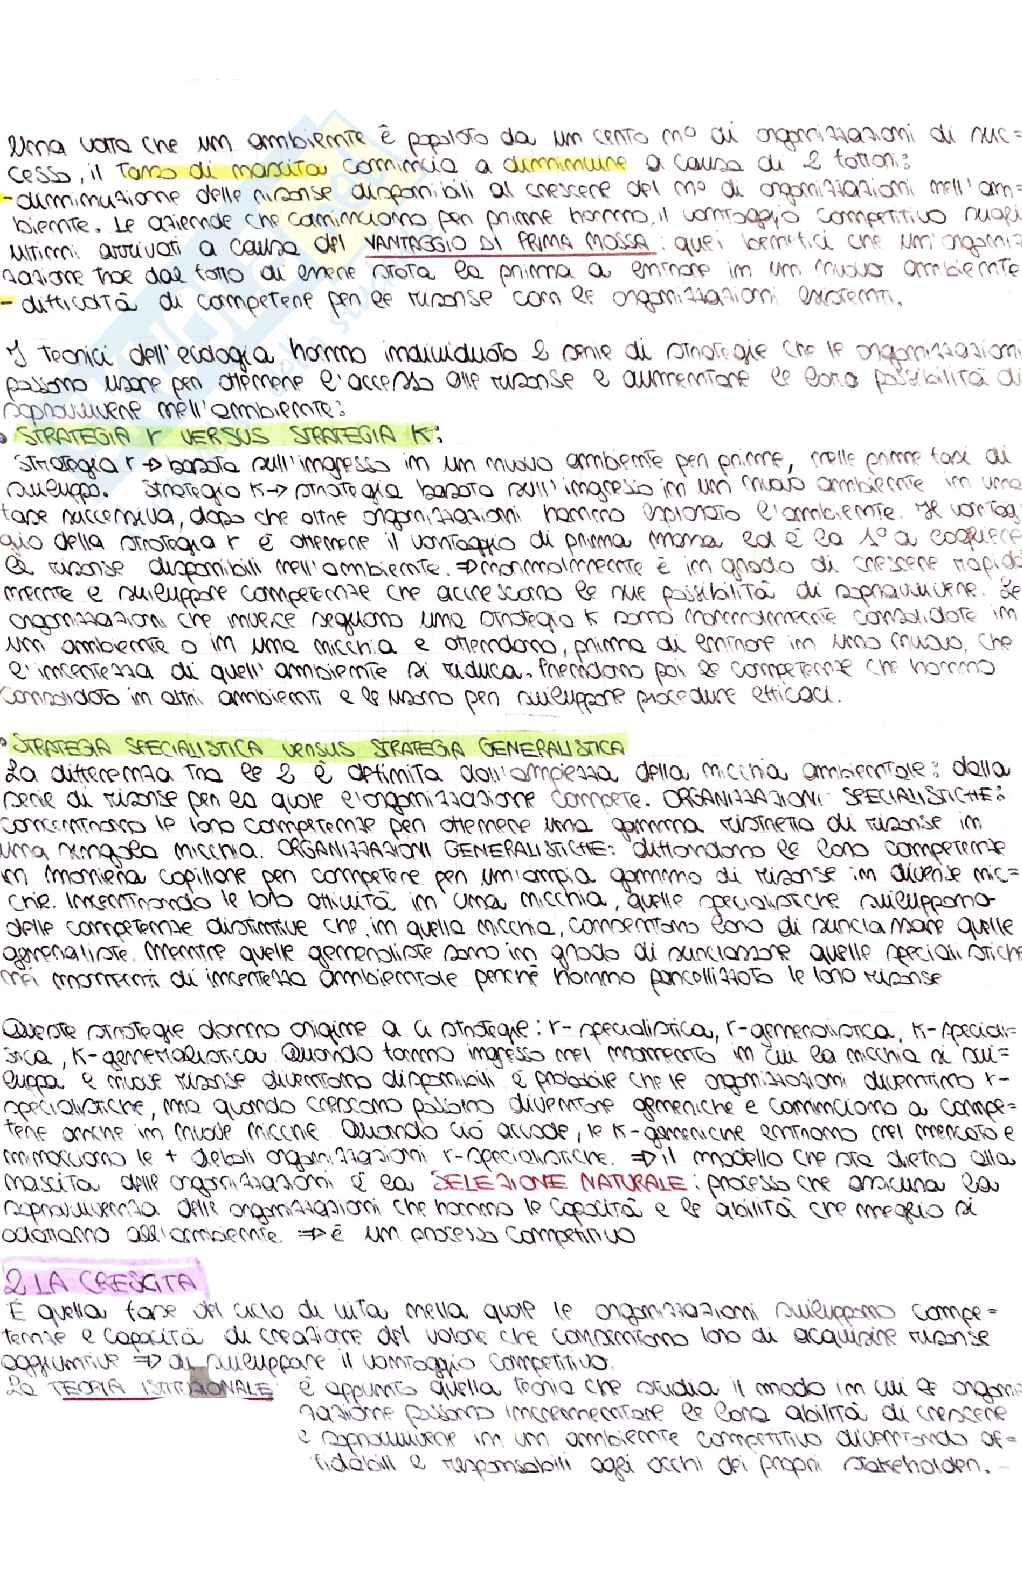 Una volta che un ambiente è popolato da un certo n° di organizzazioni di suc=
cesso, il tasso di nascita comincia a diminuire a causa di 2 fattori:
- diminuzione delle risorse disponibili al crescere del n° di organizzazioni nell'am=
biente. Le aziende che cominciano per prime hanno il vantaggio competitivo sugli
ultimi arrivati a causa del VANTAGGIO DI PRIMA MOSSA: quei benefici che un'organiz
zazione trae dal fatto di essere stata la prima a entrare in un nuovo ambiente
- difficoltà di competere per le risorse con le organizzazioni esistenti.
I teorici dell'ecologia hanno individuato 2 serie di strategie che le organizzazioni
possono usare per ottenere l'accesso alle risorse e aumentare le loro possibilità di
sopravvivere nell'ambiente:
• STRATEGIA r VERSUS STRATEGIA K:
Strategia r → basata sull'ingresso in un nuovo ambiente per prime, nelle prime fasi di
sviluppo. Strategia K → strategia basata sull'ingresso in un nuovo ambiente in una
fase successiva, dopo che altre organizzazioni hanno esplorato l'ambiente. Il vantag
gio della strategia r è ottenere il vantaggio di prima mossa ed è la 1° a cogliere
le risorse disponibili nell'ambiente. ⇒ normalmente è in grado di crescere rapida
mente e sviluppare competenze che accrescono le sue possibilità di sopravvivere. Le
organizzazioni che invece seguono una strategia K sono normalmente consolidate in
un ambiente o in una nicchia e attendono, prima di entrare in uno nuovo, che
l'incertezza di quell'ambiente si riduca. Prendono poi le competenze che hanno
consolidato in altri ambienti e le usano per sviluppare procedure efficaci.
• STRATEGIA SPECIALISTICA VERSUS STRATEGIA GENERALISTICA
La differenza tra le 2 è definita dall'ampiezza della nicchia ambientale: dalla
serie di risorse per la quale l'organizzazione compete. ORGANIZZAZIONI SPECIALISTICHE:
concentrano le loro competenze per ottenere una gamma ristretta di risorse in
una singola nicchia. ORGANIZZAZIONI GENERALISTICHE: diffondono le loro competenze
in maniera capillare per competere per un'ampia gamma di risorse in diverse nic=
chie. Incentrando le loro attività in una nicchia, quelle specialistiche sviluppano
delle competenze distintive che, in quella nicchia, consentono loro di surclassare quelle
generaliste. Mentre quelle generaliste sono in grado di surclassare quelle specialistiche
nei momenti di incertezza ambientale perchè hanno parcellizzato le loro risorse
Queste strategie danno origine a 4 strategie: r-specialistica, r-generalistica, K-speciali=
stica, K-generalistica. Quando fanno ingresso nel momento in cui la nicchia si svi=
luppa e nuove risorse diventano disponibili è probabile che le organizzazioni diventino r-
specialistiche, ma quando crescono possono diventare generiche e cominciano a compe=
tere anche in nuove nicchie. Quando ciò accade, le K-generiche entrano nel mercato e
minacciano le + deboli organizzazioni r-specialistiche. ⇒ il modello che sta dietro alla
nascita delle organizzazioni è la SELEZIONE NATURALE: processo che assicura la
sopravvivenza delle organizzazioni che hanno le capacità e le abilità che meglio si
adattano all'ambiente. ⇒ è un processo competitivo
2 LA CRESCITA
È quella fase del ciclo di vita nella quale le organizzazioni sviluppano compe=
tenze e capacità di creazione del valore che consentono loro di acquisire risorse
aggiuntive ⇒ di sviluppare il vantaggio competitivo.
La TEORIA ISTITUZIONALE è appunto quella teoria che studia il modo in cui le organiz
zazione possono incrementare le loro abilità di crescere
e sopravvivere in un ambiente competitivo diventando af=
fidabili e responsabili agli occhi dei propri stakeholder.